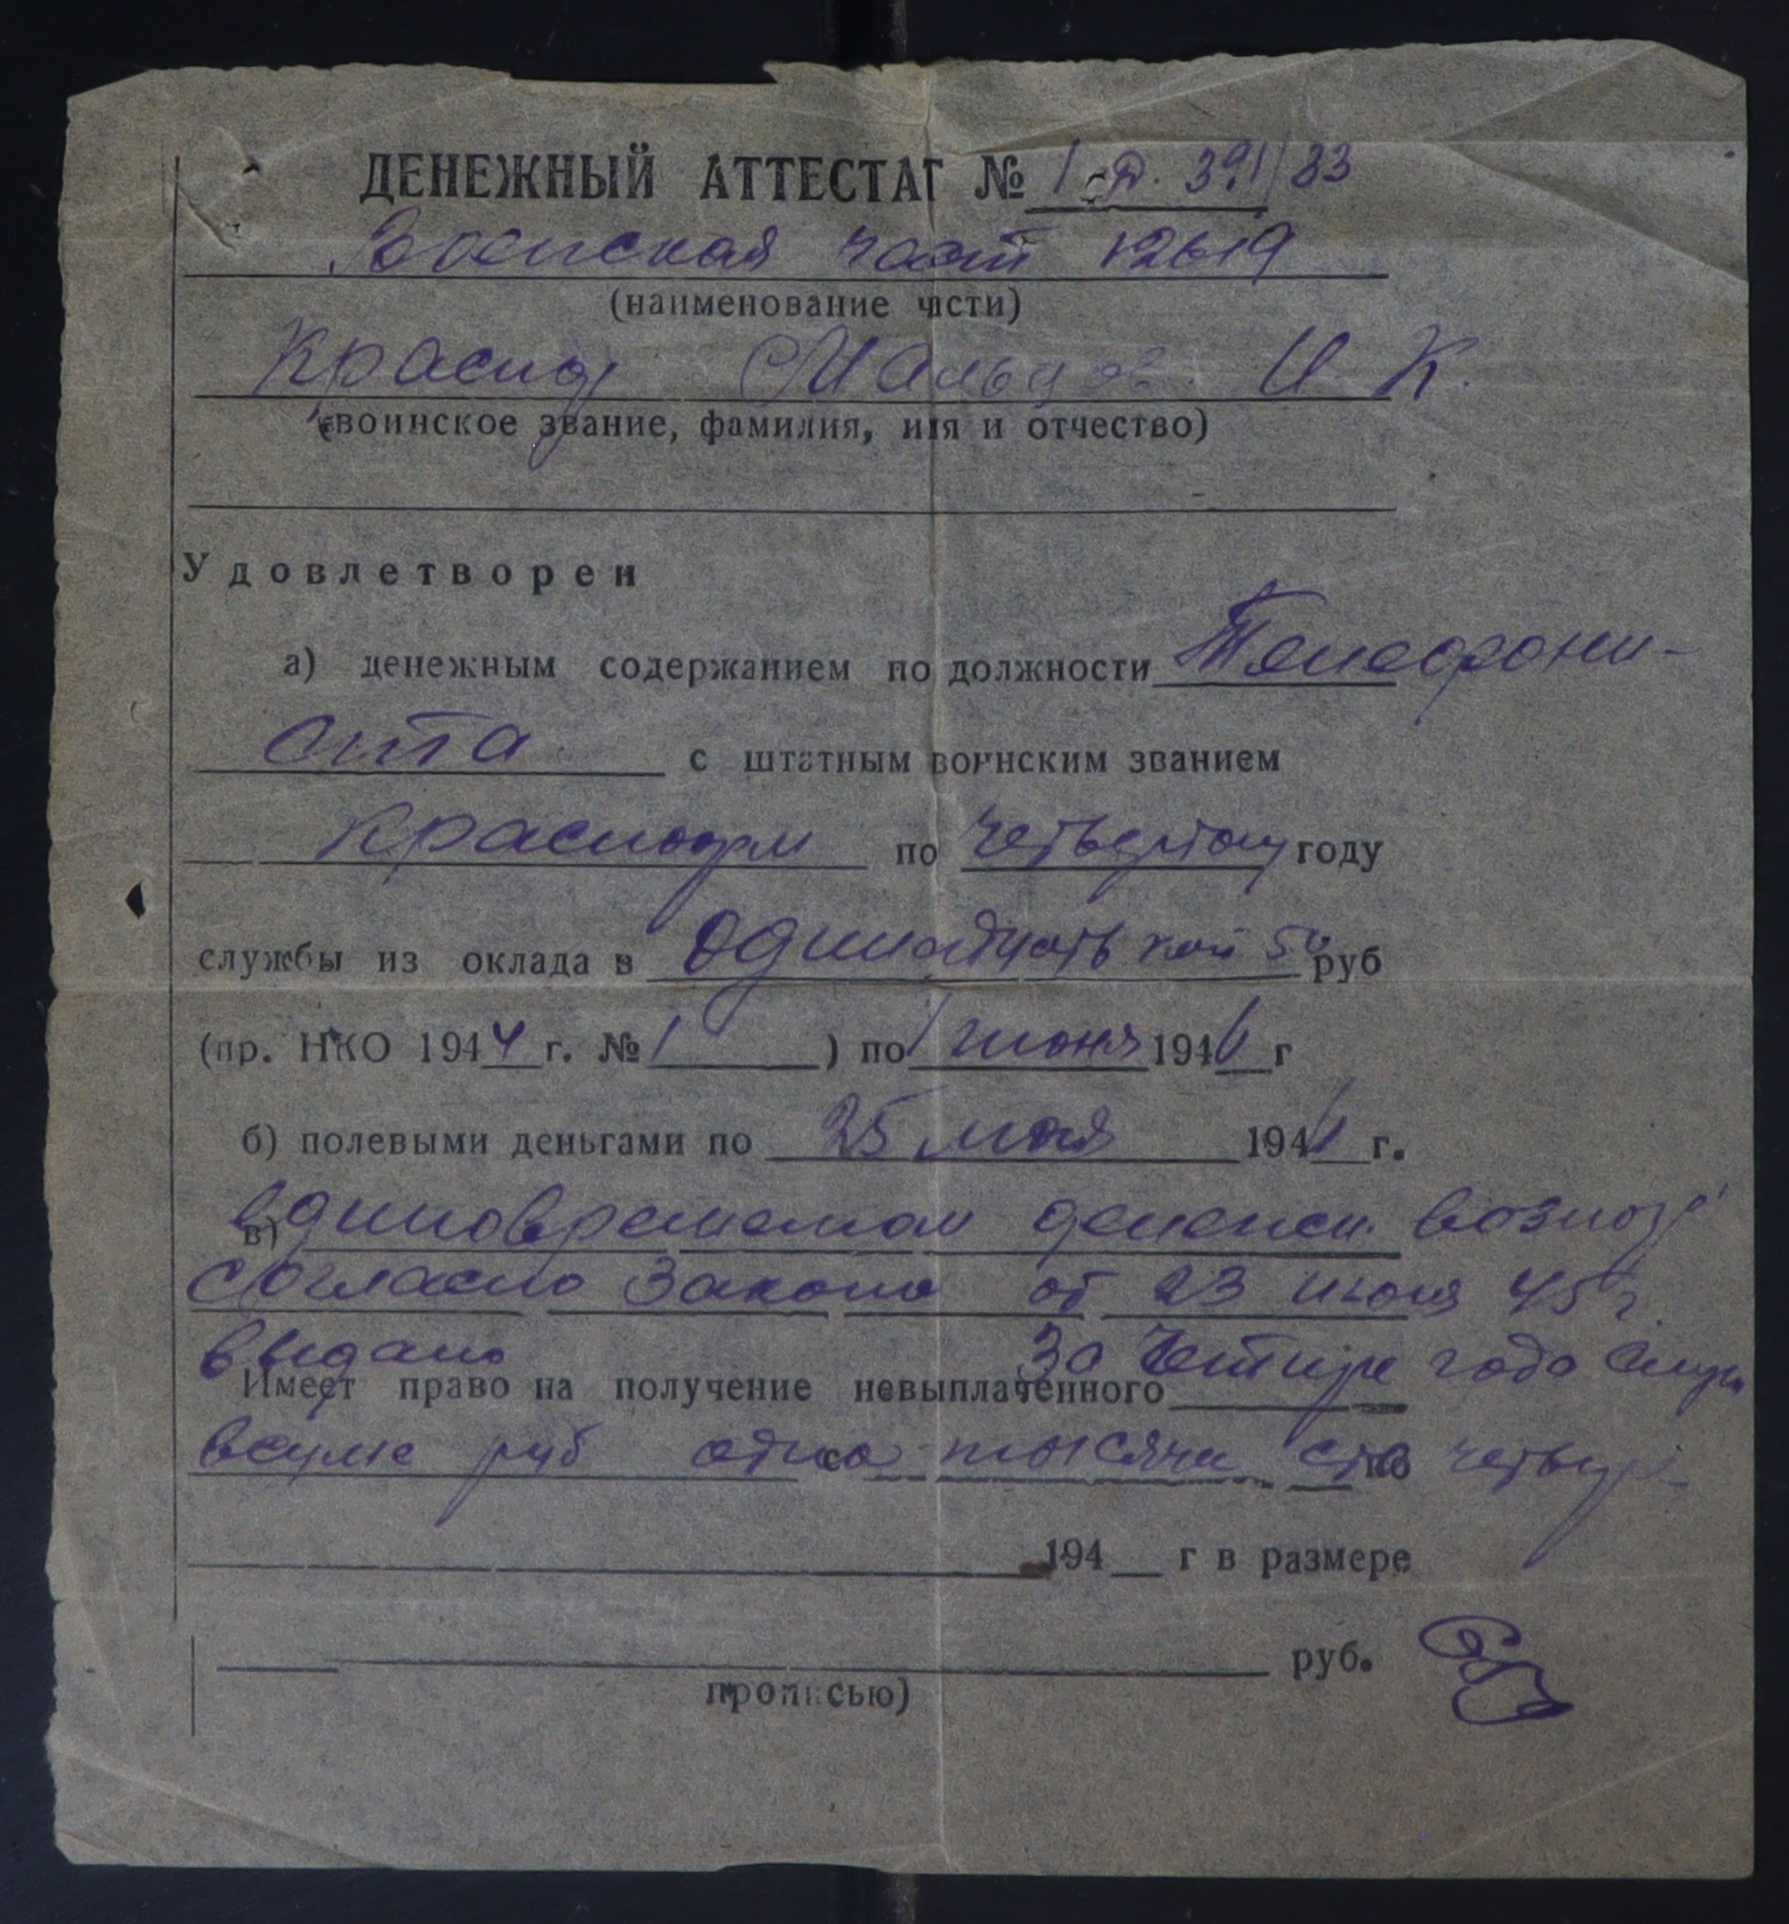 ДЕНЕЖНЫЙ АТТЕСТАТ № 391/83
Воинская част 12619
(наименование части)
Красно Мальцов И. К.
(воинское звание, фамилия, имя и отчество)
Удовлетворен
а) денежным содержанием по должности Телефони-
ста с штатным воинским званием
Красноарм по четвертому году
службы из оклада в одинадцать коп 50 руб
(пр. НКО 1944 г. № 1 ) по 1 июня 1946 г
б) полевыми деньгами по 25 мая 1946 г.
в) единовременом денежн. возног
согласно Закона от 23 июня 45 г.
выдано За четыре года служ
Имеет право на получение невыплаченного
всуме руб одна с тысяча сто по четыре
194 г в размере
руб.
прописью)